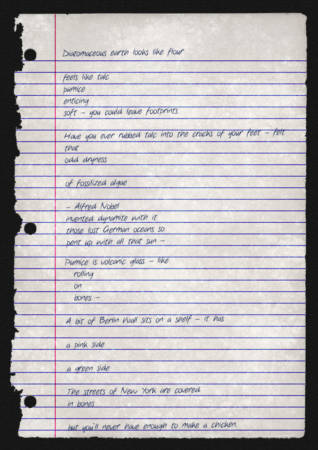 Diatomaceous earth looks like flour
feels like talc
pumice
enticing
soft – you could leave footprints
Have you ever rubbed talc into the cracks of your feet – felt
that
odd dryness
of fossilized algae
– Alfred Nobel
invented dynamite with it
those lost German oceans so
pent up with all that sun –
Pumice is volcanic glass – like
rolling
on
bones –
A bit of Berlin Wall sits on a shelf – it has
a pink side
a green side
The streets of New York are covered
in bones
but you'll never have enough to make a chicken